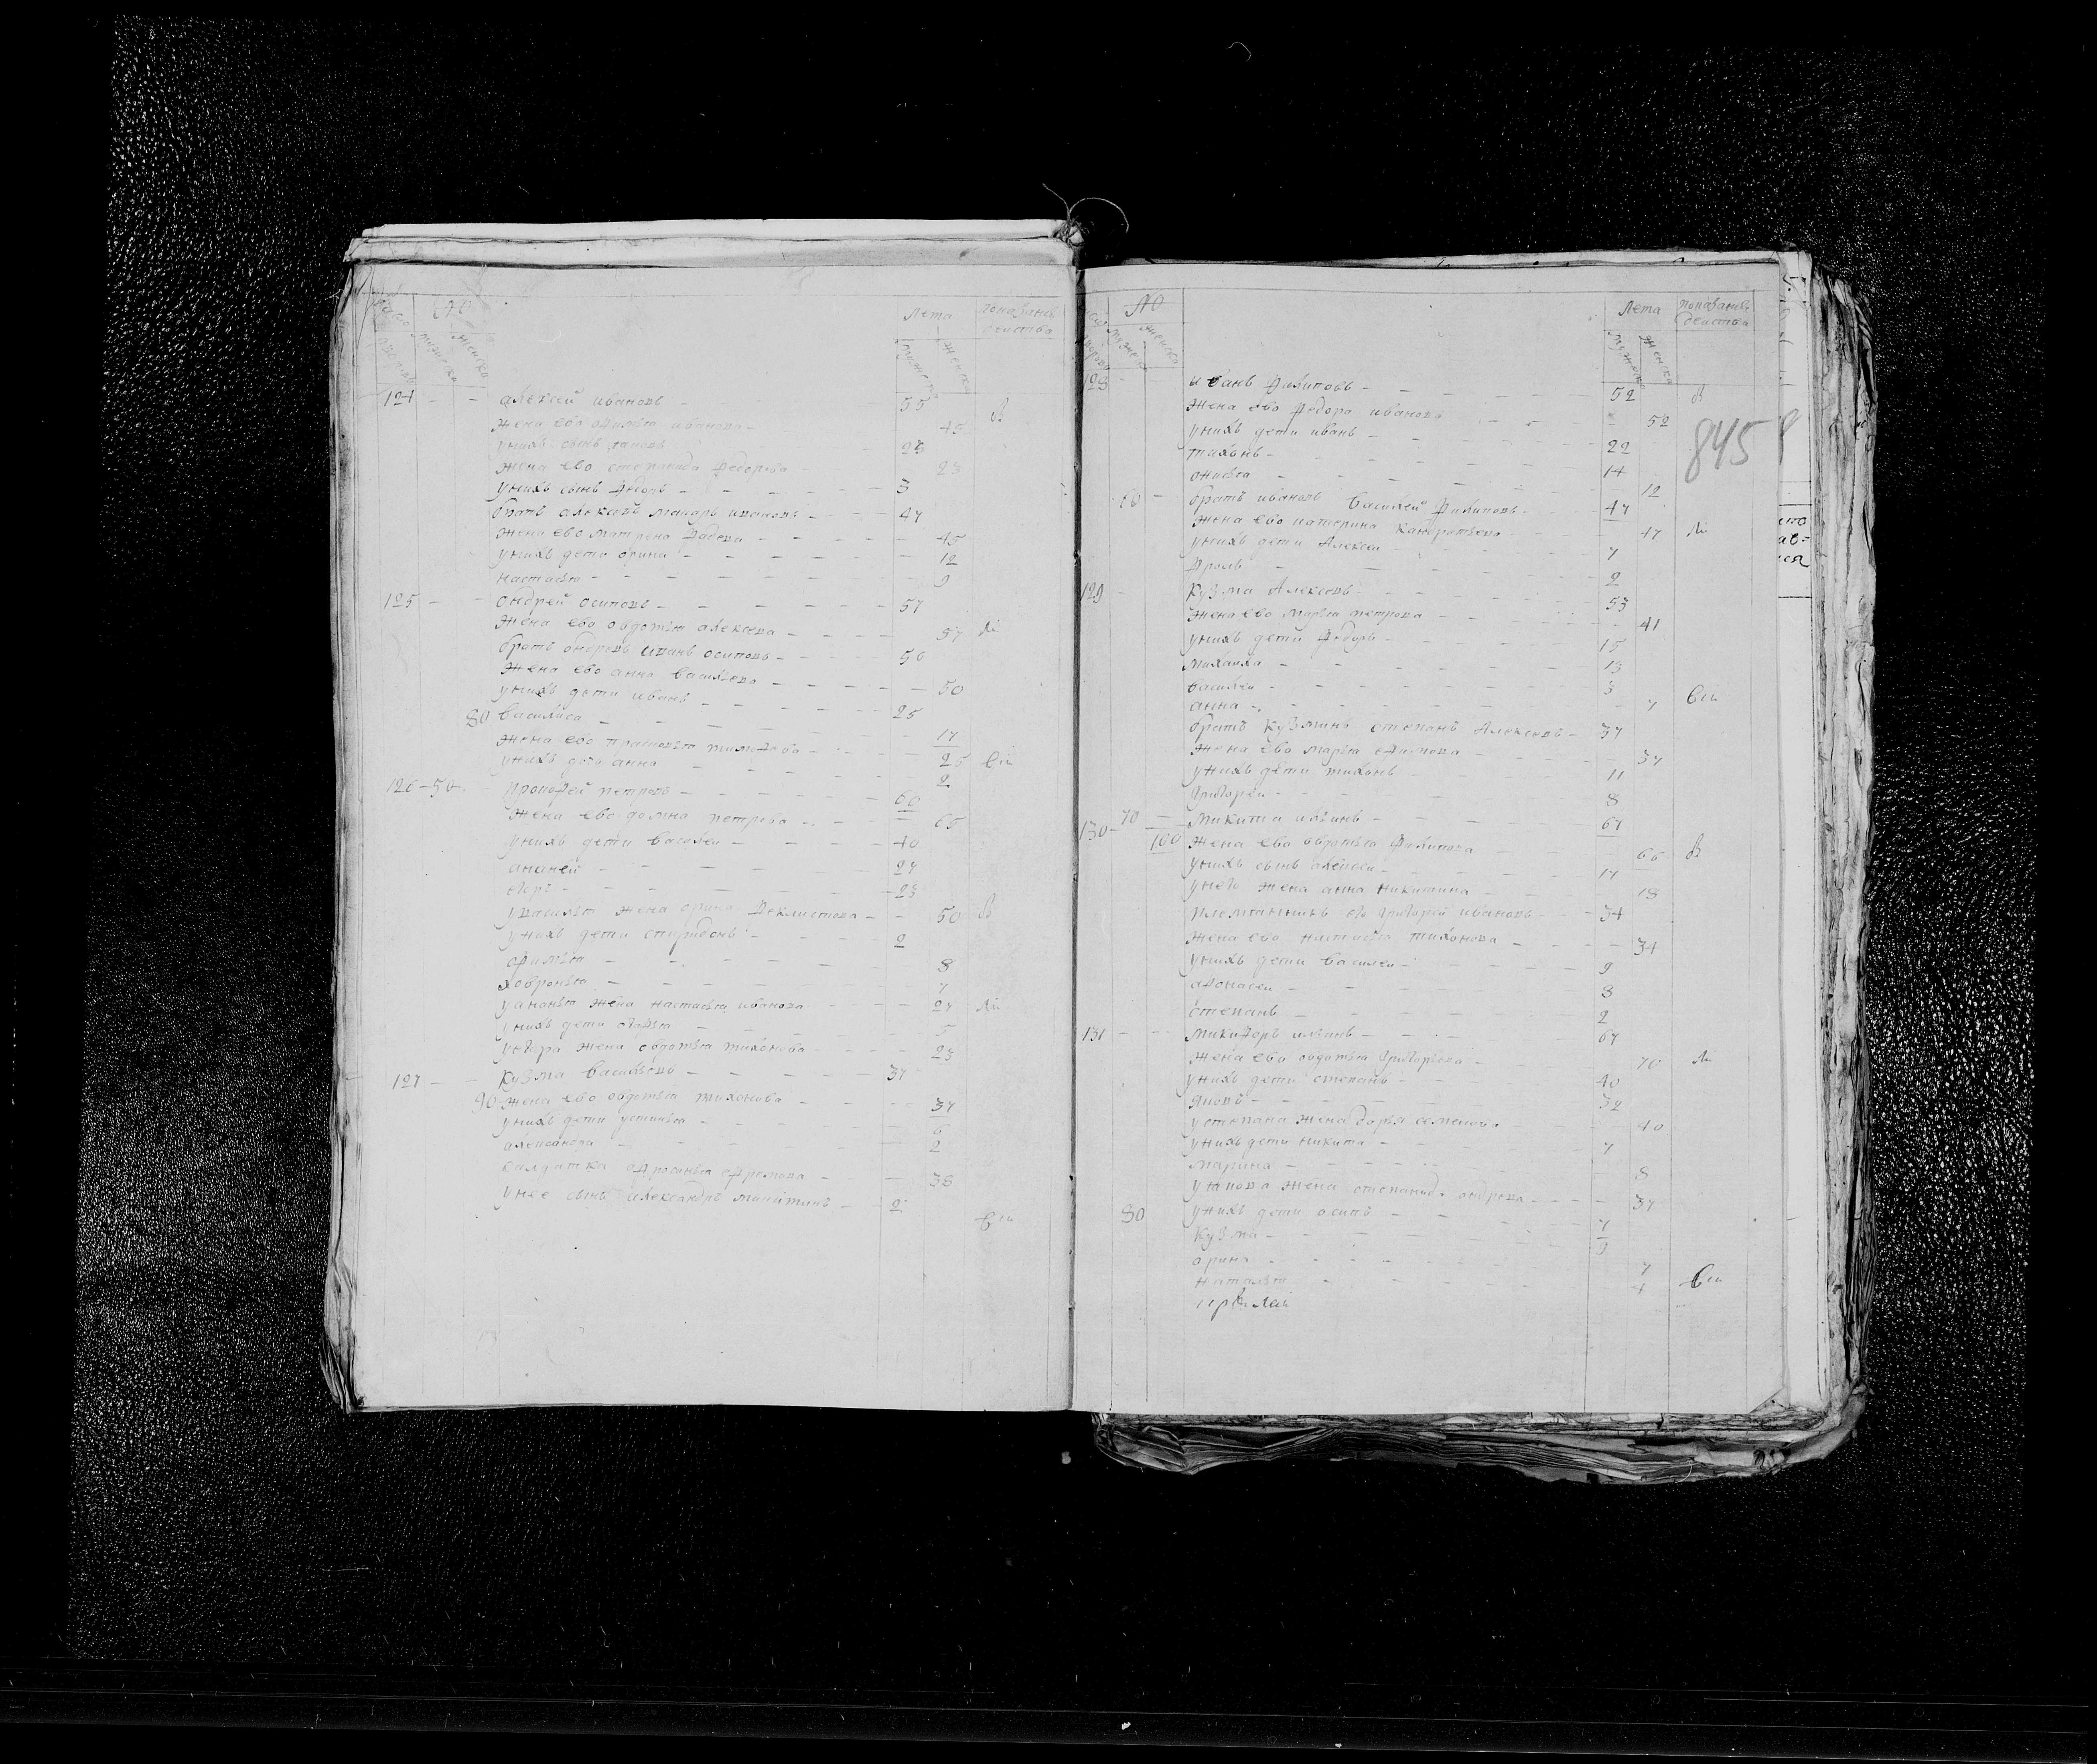 Число дворовъ
мужеска
женска
Лета
мужеска
женска
показанье
действа
124 - - алексей ивановъ - 55
жена ево офимья иванова - 45
у нихъ сынъ 23
жена ево степанида федорова 23
у нихъ сынъ - 3
братъ алексеевъ макаръ ивановъ - 47
жена ево матрена - 45
у нихъ дети орина - 12
настасья - 9
125 - - ондрей осиповъ - 57
жена ево овдотья алексеева - 57
братъ ондреевъ иванъ осиповъ - 56
жена ево анна васильева - 50
у нихъ дети иванъ - 25
80 василиса - 17
жена ево прасковья тимофеева - 25
у нихъ дочь анна - 2
126 - прокофей петровъ - 60
жена ево домна петрова - 65
у нихъ дети василей - 40
ананей - 27
егоръ - 23
у василья жена орина феклистова - 50
у нихъ дети спиридонъ - 2
офимья - 8
ховронья - 7
у ананья жена настасья иванова - 27
у нихъ дети - 5
у егора жена овдотья тихонова - 23
127 - - кузма васильевъ - 37
90 жена ево овдотья тихонова - 37
у нихъ дети устинья - 6
александра - 2
салдатка офросинья - 38
у нее сынъ александръ - 2
число дворовъ
мужеска
женска
Лета
мужеска
женска
показанье
действа
128 - иванъ филиповъ - 52
845
жена ево федора иванова - 52
у нихъ дети иванъ - 22
тихонъ - 14
онисья - 12
братъ ивановъ василей филиповъ - 47
жена ево катерина кандратьева - 47
у нихъ дети алексей - 7
фролъ - 2
129 - кузма алексеевъ - 53
жена ево марья петрова - 41
у нихъ дети федоръ - 15
михаила - 13
василей - 3
анна - 7
братъ кузминъ степанъ алексеевъ - 37
жена ево марья - 37
у нихъ дети тихонъ - 11
григорей - 8
130 - 70 микита ильинъ - 67
100 жена ево овдотья филипова 66
у нихъ сынъ алексей - 17
у него жена анна никитина 18
племянникъ ево григорей ивановъ - 34
жена ево настасья тихонова - 34
у нихъ дети василей - 9
афонасей - 8
степанъ - 2
131 - - микифоръ ильинъ - 67
жена ево овдотья григорьева - 70
у нихъ дети степанъ - 40
яковъ - 32
у степана жена дарья семенова 40
у нихъ дети никита - 7
марина - 8
у якова жена степанида ондреева - 37
80 у нихъ дети осипъ - 7
кузма - 3
орина - 7
наталья -